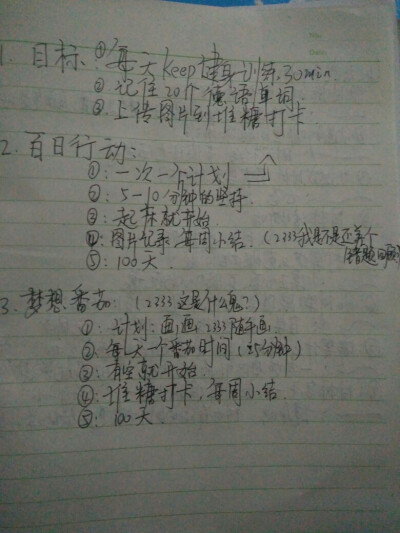 1. 目标：①每天Keep健身训练30min
② 记住20个德语单词
③ 上传图片到堆糖打卡
2. 百日行动：
①：一次一个计划
②：5-10分钟的坚持
③：起床就开始
④：图片记录，每周小结.（2333我是不是还差个
⑤：100天
3. 梦想番茄（2333这是什么鬼？）
①：计划：画画，2333随手画
②：每天一个番茄时间（25分钟）
③：有空就开始
④：堆糖打卡，每周小结.
⑤：100天